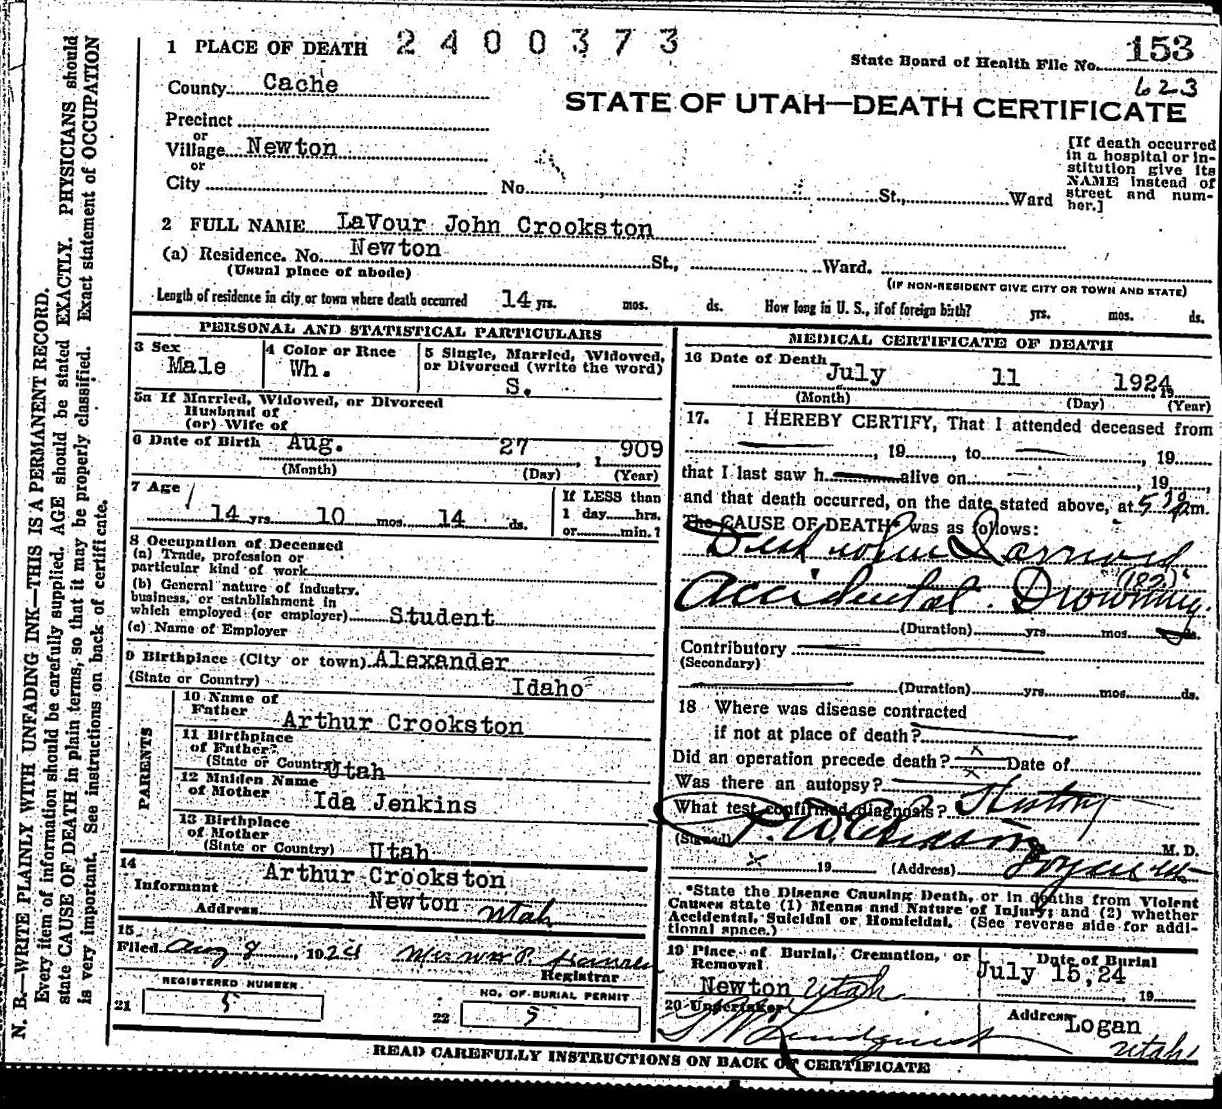 N. B.—WRITE PLAINLY WITH UNFADING INK—THIS IS A PERMANENT RECORD.
Every item of information should be carefully supplied. AGE should be stated EXACTLY. PHYSICIANS should
state CAUSE OF DEATH in plain terms, so that it may be properly classified. Exact statement of OCCUPATION
is very important. See instructions on back of certificate.
1 PLACE OF DEATH 2400373
State Board of Health File No. 153
623
County Cache
STATE OF UTAH—DEATH CERTIFICATE
Precinct
or
Village Newton
or
City No. St., Ward
[If death occurred
in a hospital or in-
stitution give its
NAME instead of
street and num-
ber.]
2 FULL NAME LaVour John Crookston
(a) Residence. No. Newton St., Ward.
(Usual place of abode) (IF NON-RESIDENT GIVE CITY OR TOWN AND STATE)
Length of residence in city or town where death occurred 14 yrs. mos. ds. How long in U. S., if of foreign birth? yrs. mos. ds.
PERSONAL AND STATISTICAL PARTICULARS
3 Sex
Male
4 Color or Race
Wh.
5 Single, Married, Widowed,
or Divorced (write the word)
S.
5a If Married, Widowed, or Divorced
Husband of
(or) Wife of
6 Date of Birth Aug. 27, 1909
(Month) (Day) (Year)
7 Age
14 yrs. 10 mos. 14 ds.
If LESS than
1 day hrs.
or min.?
8 Occupation of Deceased
(a) Trade, profession or
particular kind of work
(b) General nature of industry,
business, or establishment in
which employed (or employer) Student
(c) Name of Employer
9 Birthplace (City or town) Alexander
(State or Country) Idaho
PARENTS
10 Name of
Father Arthur Crookston
11 Birthplace
of Father
(State or Country) Utah
12 Maiden Name
of Mother Ida Jenkins
13 Birthplace
of Mother
(State or Country) Utah
14
Informant Arthur Crookston
Address Newton Utah
15
Filed Aug 8, 1924
Registrar
REGISTERED NUMBER
21 5
NO. OF BURIAL PERMIT
22 5
MEDICAL CERTIFICATE OF DEATH
16 Date of Death July 11 1924 19
(Month) (Day) (Year)
17. I HEREBY CERTIFY, That I attended deceased from
, 19 , to , 19
that I last saw h alive on , 19
and that death occurred, on the date stated above, at 5 30 p m.
The CAUSE OF DEATH* was as follows:
Dead when I arrived
(182)
Accidental Drowning.
(Duration) yrs. mos. ds.
Contributory
(Secondary)
(Duration) yrs. mos. ds.
18 Where was disease contracted
if not at place of death?
Did an operation precede death? x Date of
Was there an autopsy? x
What test confirmed diagnosis? History
(Signed) M. D.
x 19 (Address)
*State the Disease Causing Death, or in deaths from Violent
Causes state (1) Means and Nature of Injury; and (2) whether
Accidental, Suicidal or Homicidal. (See reverse side for addi-
tional space.)
19 Place of Burial, Cremation, or
Removal
Newton Utah
Date of Burial
July 15, 24
, 19
20 Undertaker
Address Logan
Utah
READ CAREFULLY INSTRUCTIONS ON BACK OF CERTIFICATE